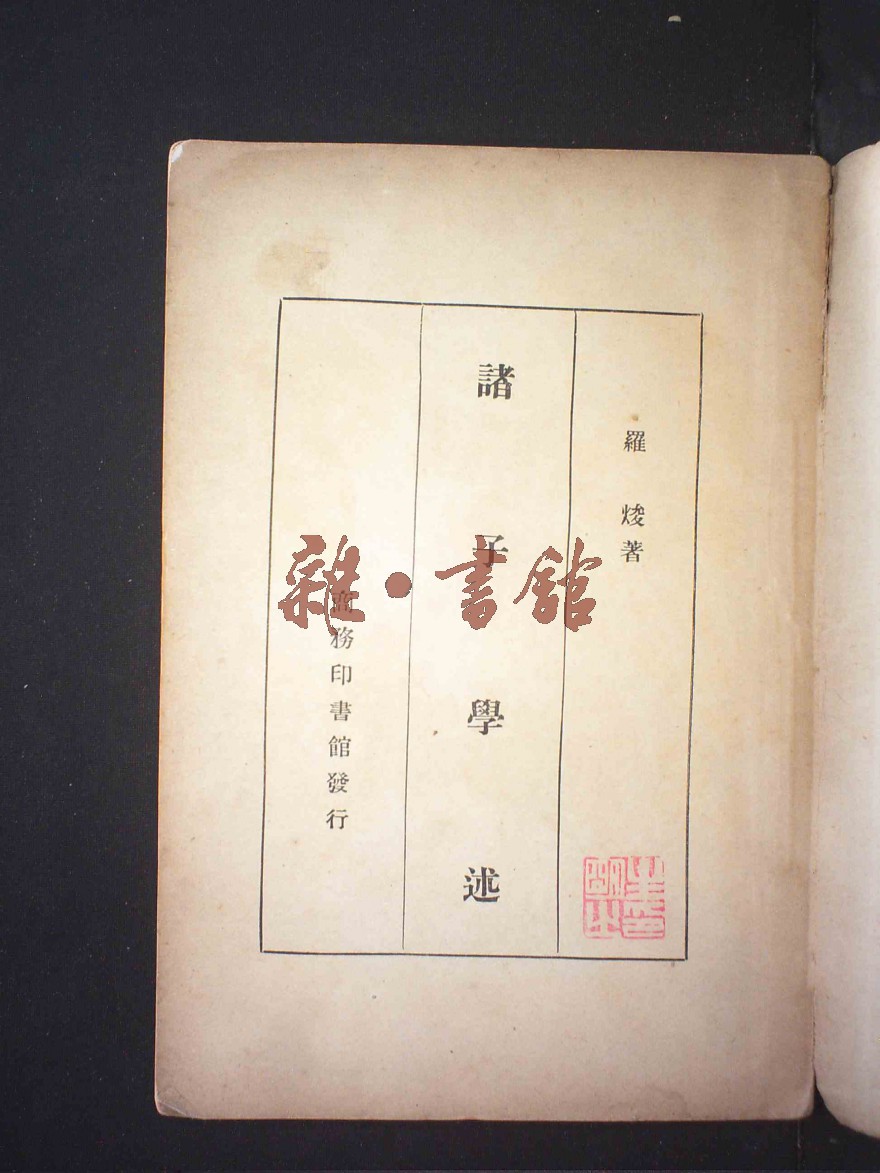 羅焌著
諸子學述
商務印書館發行
雜·書館